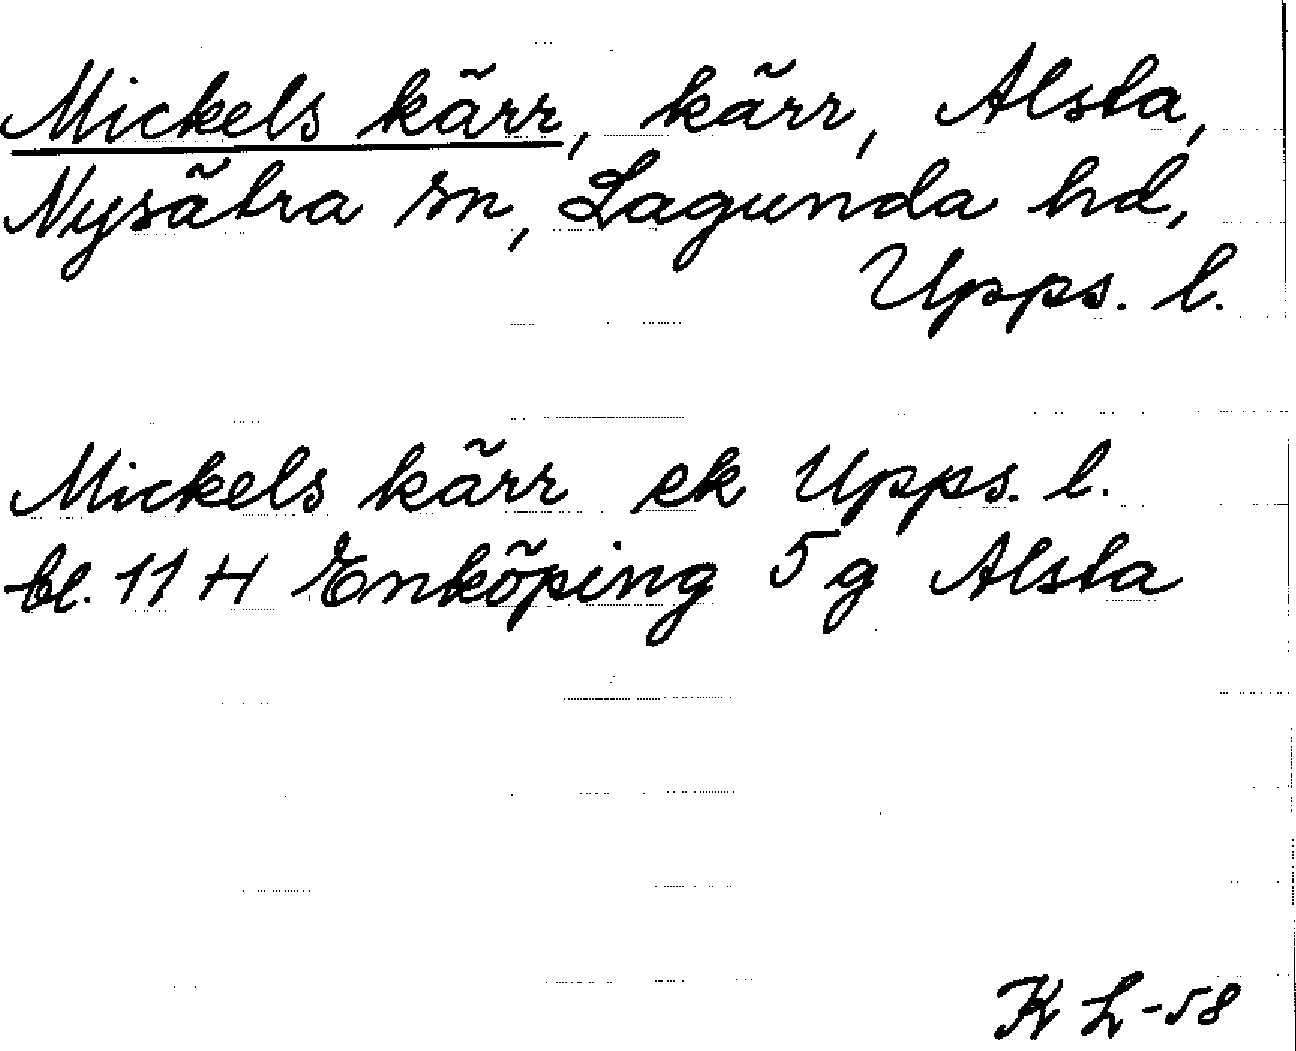 Mickels kärr, kärr, Alsta,
Nysätra sn, Lagunda hd,
Upps. l.
Mickels kärr ek Upps. l.
bl. 11 H Enköping 5 g Alsta
K L -58